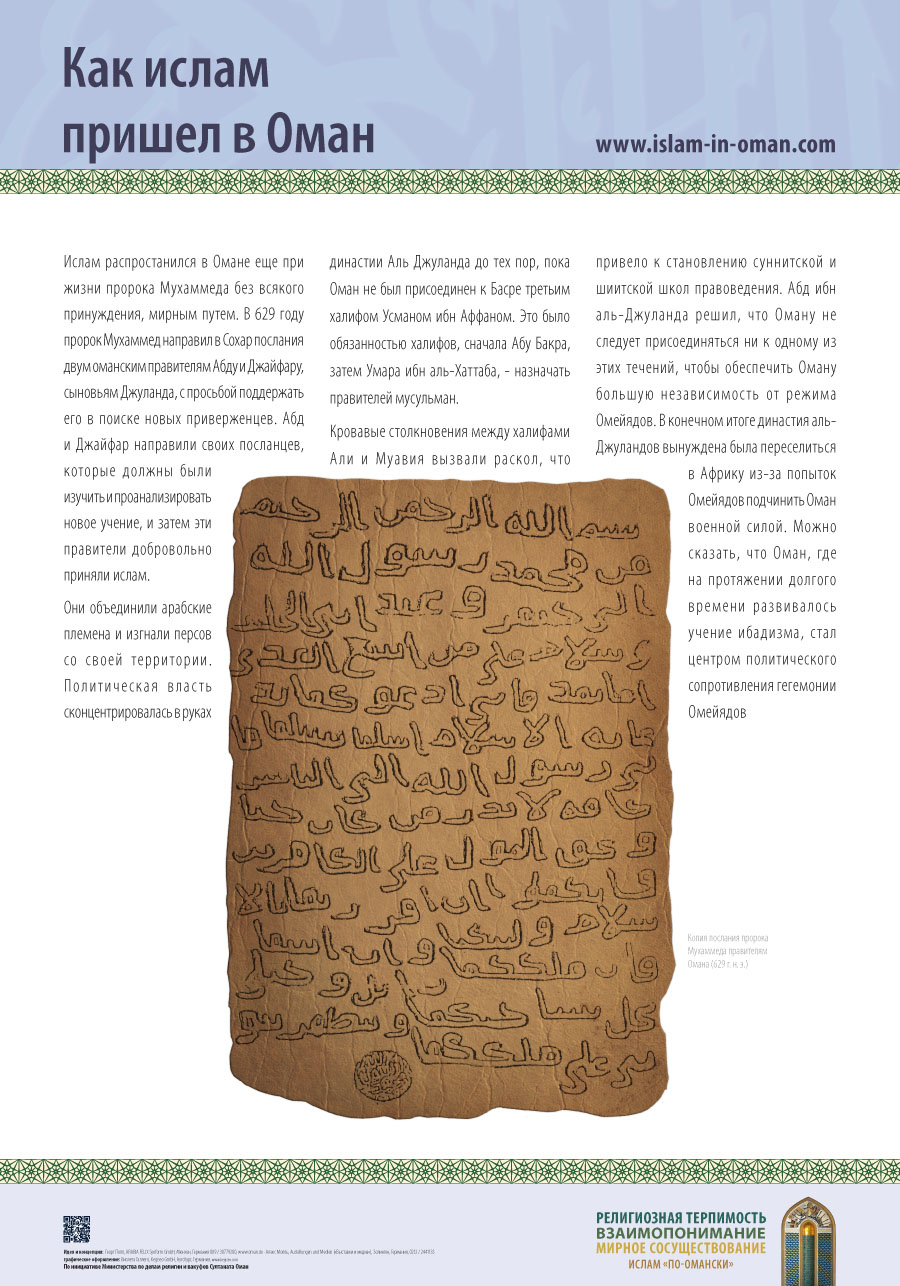 Как ислам
пришел в Оман
www.islam-in-oman.com
Ислам распростанился в Омане еще при
жизни пророка Мухаммеда без всякого
принуждения, мирным путем. В 629 году
пророк Мухаммед направил в Сохар послания
двум оманским правителям Абду и Джайфару,
сыновьям Джуланда, с просьбой поддержать
его в поиске новых приверженцев. Абд
и Джайфар направили своих посланцев,
которые должны были
изучить и проанализировать
новое учение, и затем эти
правители добровольно
приняли ислам.
Они объединили арабские
племена и изгнали персов
со своей территории.
Политическая власть
сконцентрировалась в руках
династии Аль Джуланда до тех пор, пока
Оман не был присоединен к Басре третьим
халифом Усманом ибн Аффаном. Это было
обязанностью халифов, сначала Абу Бакра,
затем Умара ибн аль-Хаттаба, - назначать
правителей мусульман.
Кровавые столкновения между халифами
Али и Муавия вызвали раскол, что
привело к становлению суннитской и
шиитской школ правоведения. Абд ибн
аль-Джуланда решил, что Оману не
следует присоединяться ни к одному из
этих течений, чтобы обеспечить Оману
большую независимость от режима
Омейядов. В конечном итоге династия аль-
Джуландов вынуждена была переселиться
в Африку из-за попыток
Омейядов подчинить Оман
военной силой. Можно
сказать, что Оман, где
на протяжении долгого
времени развивалось
учение ибадизма, стал
центром политического
сопротивления гегемонии
Омейядов
بسم الله الرحمن الرحيم
من محمد رسول الله
الى جيفر و عبد ابني
على من اتبع الهدى
اما بعد فاني ادعوكما
الاسلام اسلما تسلما فا
ني رسول الله الى الناس
كافة لانذر من كان حيا
و يحق القول على الكافرين
Копия послания пророка
Мухаммеда правителям
Омана (629 г. н. э.)
РЕЛИГИОЗНАЯ ТЕРПИМОСТЬ
ВЗАИМОПОНИМАНИЕ
МИРНОЕ СОСУЩЕСТВОВАНИЕ
ИСЛАМ «ПО-ОМАНСКИ»
По инициативе Министерства по делам религии и вакуфов Султаната Оман